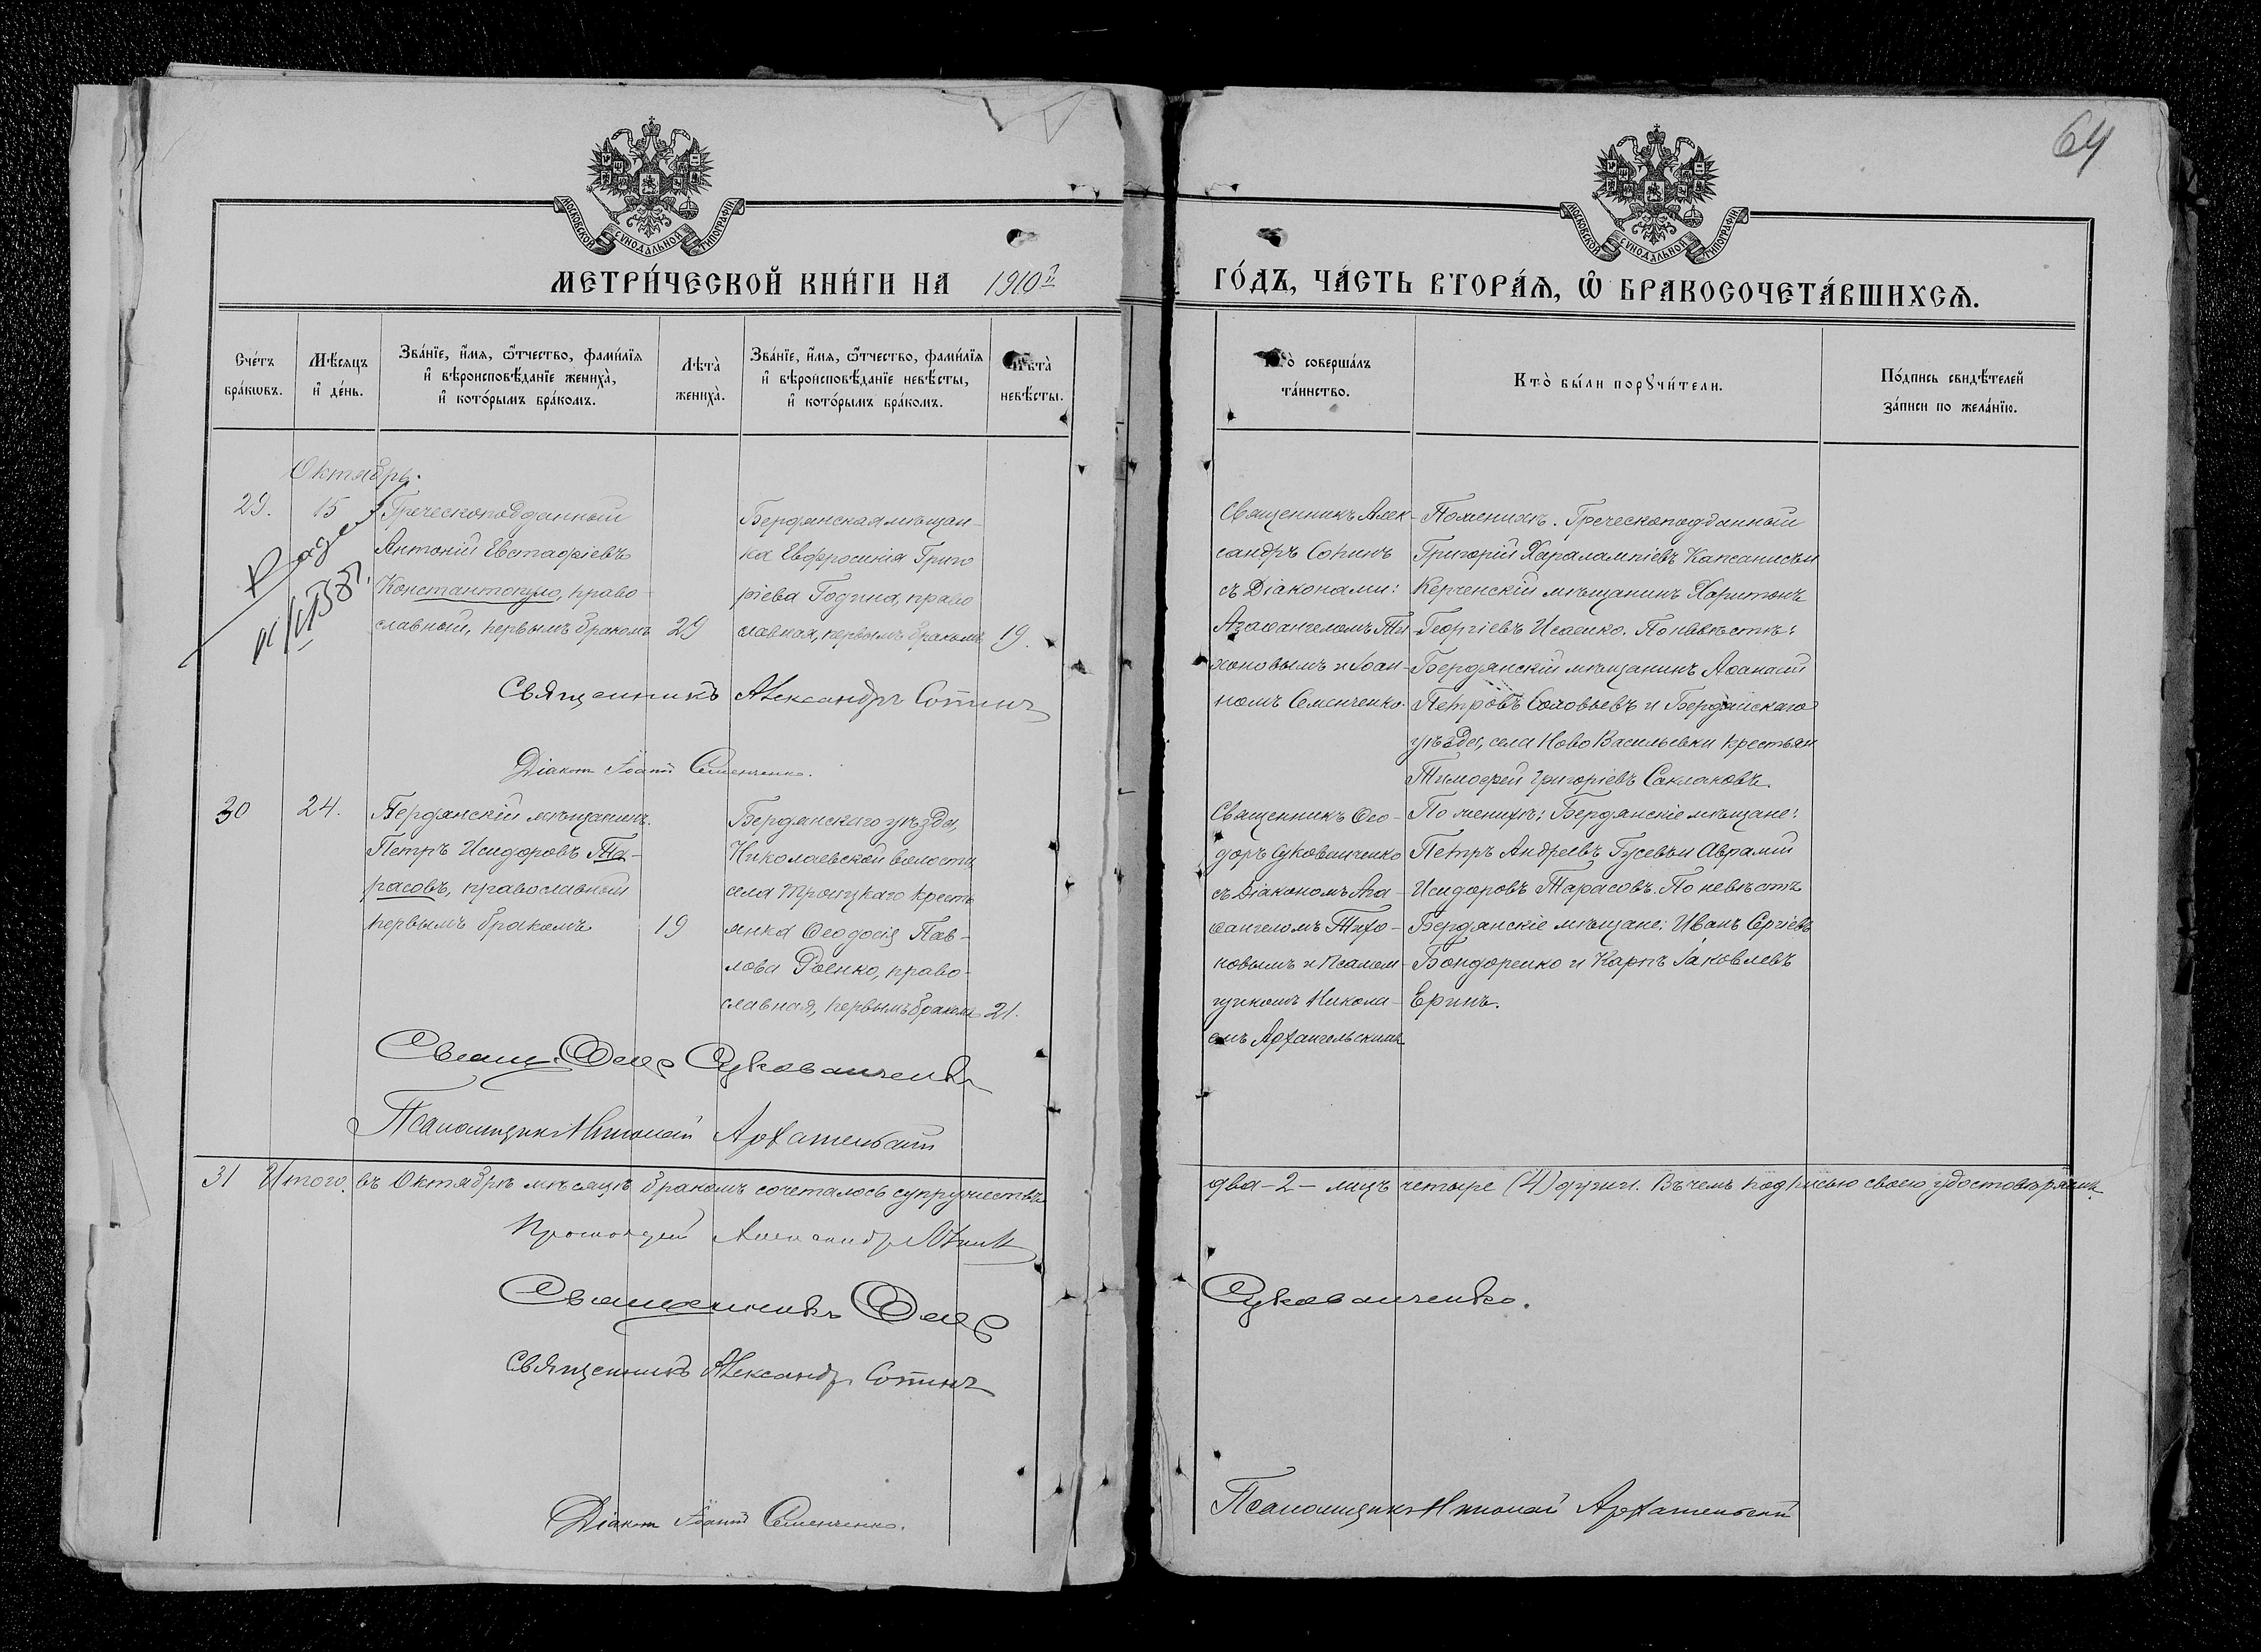 64
МОСКОВСКОЙ СѴНОДАЛЬНОЙ ТИПОГРАФІИ
МОСКОВСКОЙ СѴНОДАЛЬНОЙ ТИПОГРАФІИ
МЕТРИ́ЧЕСКОЙ КНИ́ГИ НА 1910 г.
ГО́ДЪ, ЧА́СТЬ ВТОРА́Я, Ѡ҆ БРАКОСОЧЕТА́ВШИХСЯ.
Сче́тъ бра́кѡвъ.
Мѣ́сяцъ и҆ де́нь.
Зва́нїе, и҆́мя, ѻ҆́тчество, фами́лїя
и҆ вѣроисповѣ́данїе жениха̀,
и҆ кото́рымъ бра́комъ.
Лѣта̀ жениха̀.
Зва́нїе, и҆́мя, ѻ҆́тчество, фами́лїя
и҆ вѣроисповѣ́данїе невѣ́сты,
и҆ кото́рымъ бра́комъ.
Лѣта̀ невѣ́сты.
Кто̀ соверша́лъ та́инство.
Кто̀ бы́ли порꙋчи́тели.
По́дпись свидѣ́телей за́писи по жела́нїю.
Октябрь.
29.
15
Греческоподданный
Антоній Евстафіевъ
Константопуло, право-
славный, первымъ бракомъ
29
Бердянская мѣщан-
ка Евфросинія Григо
ріева Година, право
славная, первымъ бракомъ
19.
Священникъ Алек-
сандръ Сопинъ
съ Діаконами:
Агаѳангеломъ Ти-
хоновымъ и Іоан-
номъ Семенченко.
По женихѣ. Греческоподданный
Григорій Харалампіевъ Капсанисъ и
Керченскій мѣщанинъ Харитонъ
Георгіевъ Исаенко. По невѣстѣ:
Бердянскій мѣщанинъ Аѳанасій
Петровъ Соловьевъ и Бердянскаго
уѣзда, села Ново Васильевки крестьян
Тимофей Григоріевъ Саклаковъ.
Священникъ Александръ Сопинъ
Діаконъ Іоаннъ Семенченко.
30
24.
Бердянскій мѣщанинъ.
Петръ Исидоровъ Та-
расовъ, православный
первымъ бракомъ
19
Бердянскаго уѣзда,
Николаевской волости,
села Троицкаго кресть
янка Ѳеодосія Пав-
лова Роенко, право-
славная, первымъ бракомъ
21.
Священникъ Ѳео-
доръ Сукованченко
съ Діакономъ Ага-
ѳангеломъ Тихо-
новымъ и Псалом-
щикомъ Никола-
емъ Архангельскимъ
По женихѣ: Бердянскіе мѣщане:
Петръ Андреевъ Гусевъ и Аврамій
Исидоровъ Тарасовъ. По невѣстѣ
Бердянскіе мѣщане: Иванъ Сергіевъ
Бондоренко и Карпъ Іаковлевъ
Еринъ.
Свящ. Ѳеод Сукованченко
Псаломщикъ Николай Архангельскій
31 Итого въ Октябрѣ мѣсяцѣ бракомъ сочеталось супружествъ
два - 2 - лицъ четыре (4) други. Въ чемъ подписью своею удостовѣряемъ.
Протоіерей Александръ
Священникъ Ѳеод Сукованченко.
Священникъ Александръ Сопинъ
Діаконъ Іоаннъ Семенченко.
Псаломщикъ Николай Архангельскій